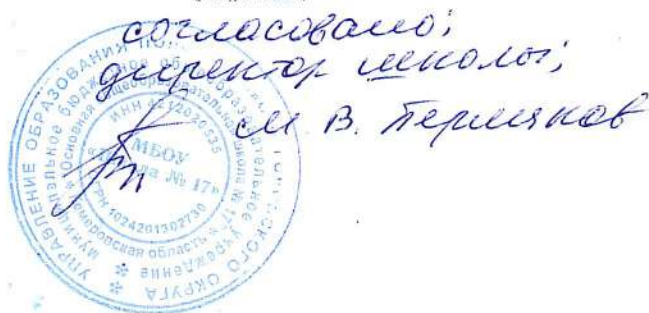 согласовано:
директор школы:
М. В. Пермяков
УПРАВЛЕНИЕ ОБРАЗОВАНИЯ СКОГО ОКРУГА
муниципальное бюджетное общеобразовательное учреждение
«Основная общеобразовательная школа № 17»
Кемеровская область
ИНН
ОГРН 1024201302730
МБОУ
«Школа № 17»